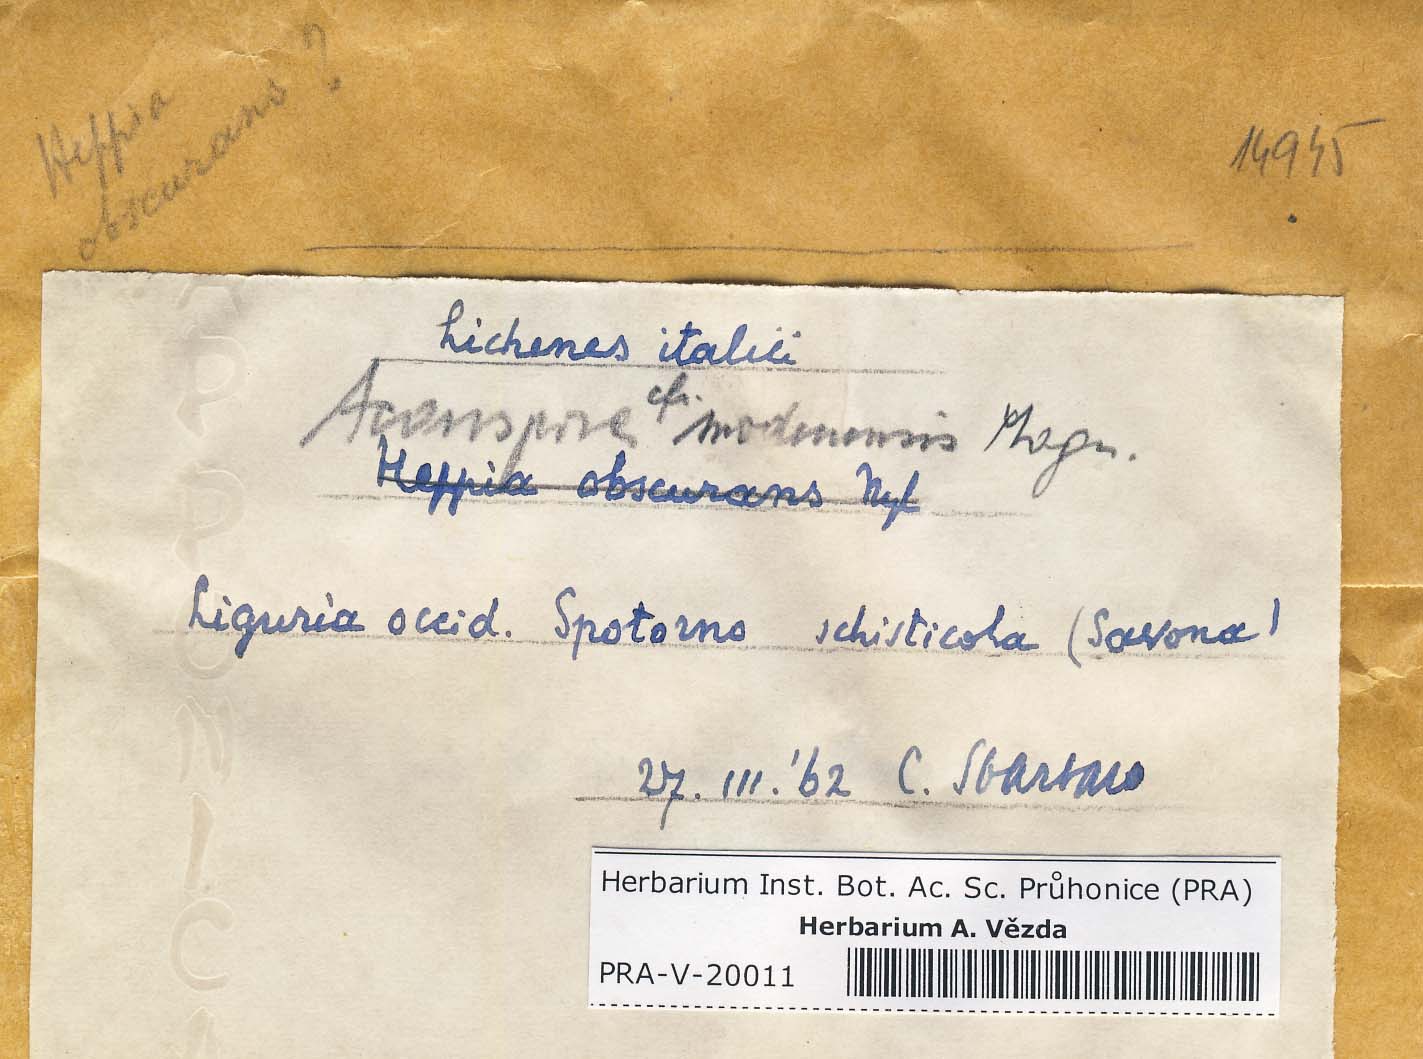 Heppia
obscurans ?
14945
Lichenes italici
Acarospora cfr. modenensis Magn.
Heppia obscurans Nyl
Liguria occid. Spotorno schisticola (Savona)
27. III. '62 C. Sbarbaro
Herbarium Inst. Bot. Ac. Sc. Průhonice (PRA)
Herbarium A. Vězda
PRA-V-20011